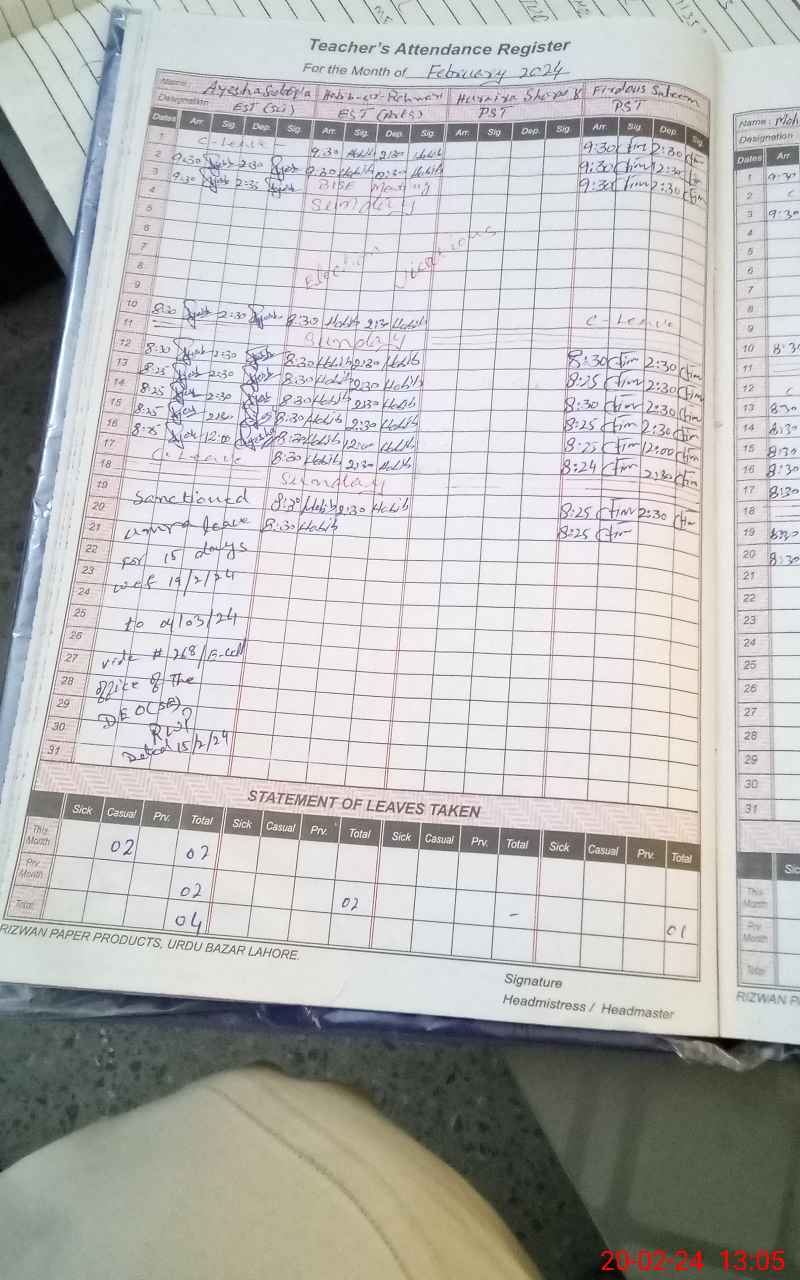 Teacher's Attendance Register
For the Month of February 2024
Name: Ayesha Habib-ur-Rehman Huraira Firdous Saleem
Designation EST (Sci) EST (Arts) PST PST
Dates Arr. Sig. Dep. Sig. Arr. Sig. Dep. Sig. Arr. Sig. Dep. Sig. Arr. Sig. Dep. Sig.
1 C-Leave 9:30 Habib 2:30 Habib 9:30 2:30
2 9:30 2:30 9:30 Habib 2:30 Habib 9:30 2:30
3 9:30 2:30 BISE Meeting 9:30 2:30
4 Sunday
5
6
7 Election
8
9
10 8:30 2:30 8:30 Habib 2:30 Habib C-Leave
11 Sunday
12 8:30 2:30 8:30 Habib 2:30 Habib 8:30 2:30
13 8:25 2:30 8:30 Habib 2:30 Habib 8:25 2:30
14 8:25 2:30 8:30 Habib 2:30 Habib 8:30 2:30
15 8:25 8:30 Habib 2:30 Habib 8:25 2:30
16 8:25 12:00 8:30 Habib 12:00 Habib 8:25 12:00
17 C-Leave 8:30 Habib 2:30 Habib 8:24 2:30
18 Sunday
19 Sanctioned 8:30 Habib 2:30 Habib 8:25 2:30
20 leave 8:30 Habib 8:25
21 for 15 days
22 19/2/24
23
24 to 04/03/24
25
26 vide # 268/E-cell
27 office of the
28 DEO (SE)
29 RWP
30 Dated 15/2/24
31
STATEMENT OF LEAVES TAKEN
Sick Casual Prv. Total Sick Casual Prv. Total Sick Casual Prv. Total Sick Casual Prv. Total
This Month 02 02
Prv. Month 02
Total 04 02 - 01
RIZWAN PAPER PRODUCTS, URDU BAZAR LAHORE.
Signature
Headmistress / Headmaster
Name: Moh
Designation:
Dates Arr.
1 9:30
2 C
3 9:30
4
5
6
7
8
9
10 8:3
11
12 C
13 8:30
14 8:30
15 8:30
16 8:30
17 8:30
18
19 8:30
20 8:30
21
22
23
24
25
26
27
28
29
30
31
Sic
This Month
Prv. Month
Total
RIZWAN P
20-02-24 13:05